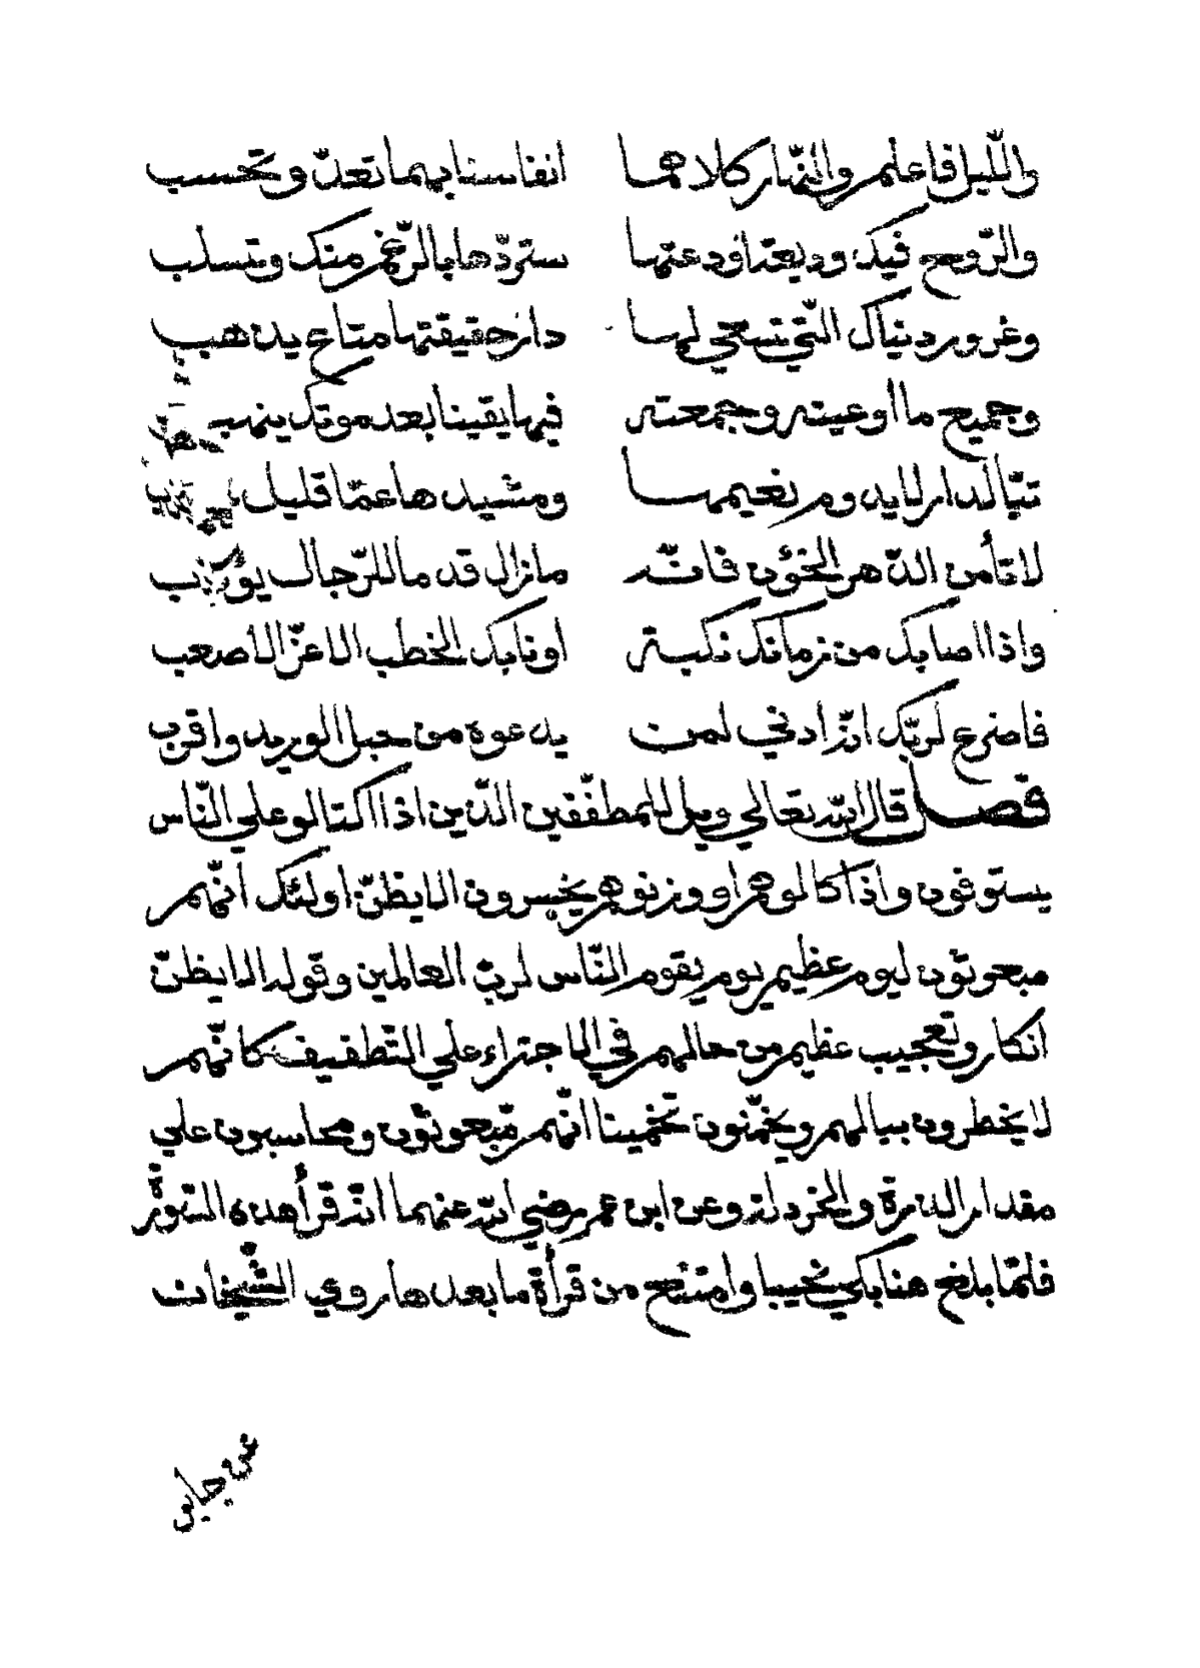 واللّيل فاعلم والنّهار كلاهما انفاسنا بهما تعدّ وتحسب
والرّوح فيك وديعة اودعتها ستردّها بالرّغم منك وتسلب
وغرور دنياك الّتي تسعي لها دار حقيقتها متاع يذهب
وجميع ما اوعيته وجمعته فيها يقينا بعد موتك ينهب
تبّا لدار لا يدوم نعيمها ومشيدها عمّا قليل
لا تأمن الدّهر الخؤن فانّه ما زال قدما للرّجال يؤدّب
واذا اصابك من زمانك نكبة او نابك الخطب الاعزّ الاصعب
فاضرع لربّك انّه ادني لمن يدعوه من حبل الوريد واقرب
فصل قال الله تعالي ويل للمطفّفين الّذين اذا اكتالو علي النّاس
يستوفون واذا كالوهم او وزنوهم يخسرون الا يظنّ اولئك انّهم
مبعوثون ليوم عظيم يوم يقوم النّاس لربّ العالمين وقوله الا يظنّ
انكار وتعجيب عظيم من حالهم في الاجتراء علي التّطفيف كانّهم
لا يخطرون ببالهم ويخمّنون تخمينا انّهم مّبعوثون ومحاسبون علي
مقدار الذرة والخردلة وعن ابن عمر رضي الله عنهما انّه قرأ هذه السّورة
فلمّا بلغ هنا بكي نحيبا وامتنع من قرأة ما بعدها روي الشّيخان
عن جابر